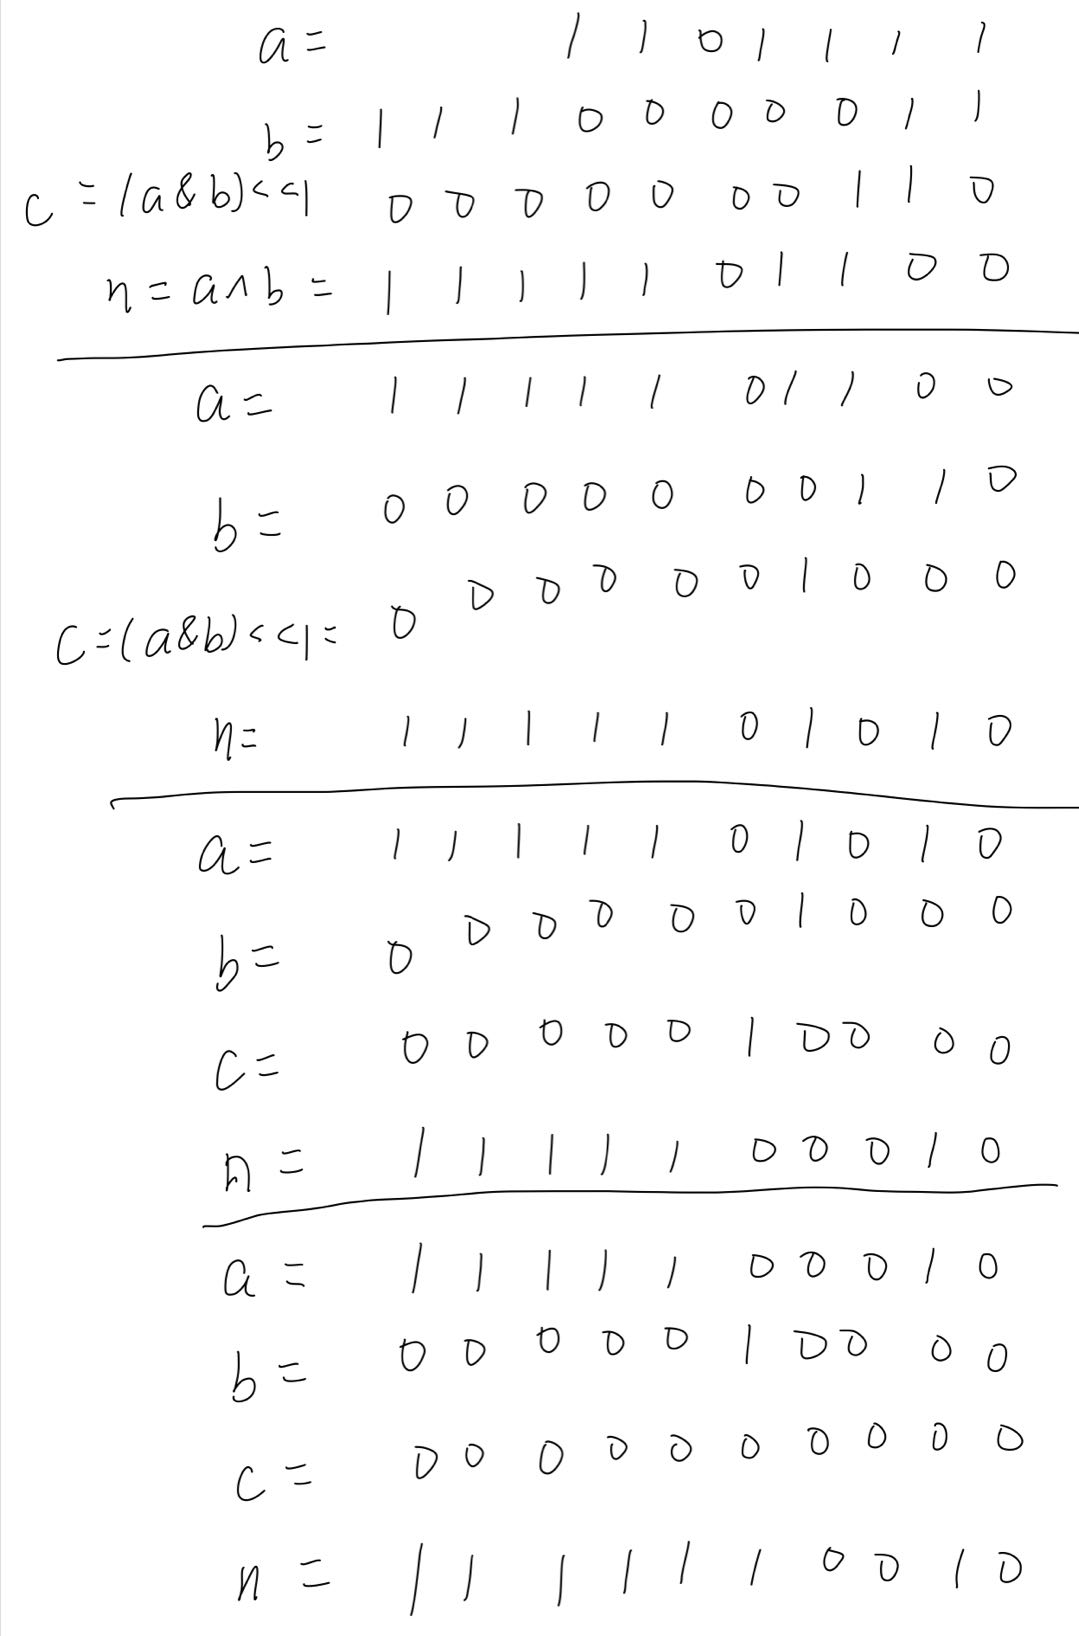 a = 1 1 0 1 1 1 1
b = 1 1 1 0 0 0 0 0 1 1
c = (a & b) << 1 0 0 0 0 0 0 0 1 1 0
n = a ^ b = 1 1 1 1 1 0 1 1 0 0
a = 1 1 1 1 1 0 1 1 0 0
b = 0 0 0 0 0 0 0 1 1 0
C = (a & b) << 1 = 0 0 0 0 0 0 1 0 0 0
n = 1 1 1 1 1 0 1 0 1 0
a = 1 1 1 1 1 0 1 0 1 0
b = 0 0 0 0 0 0 1 0 0 0
C = 0 0 0 0 0 1 0 0 0 0
n = 1 1 1 1 1 0 0 0 1 0
a = 1 1 1 1 1 0 0 0 1 0
b = 0 0 0 0 0 1 0 0 0 0
c = 0 0 0 0 0 0 0 0 0 0
n = 1 1 1 1 1 1 0 0 1 0